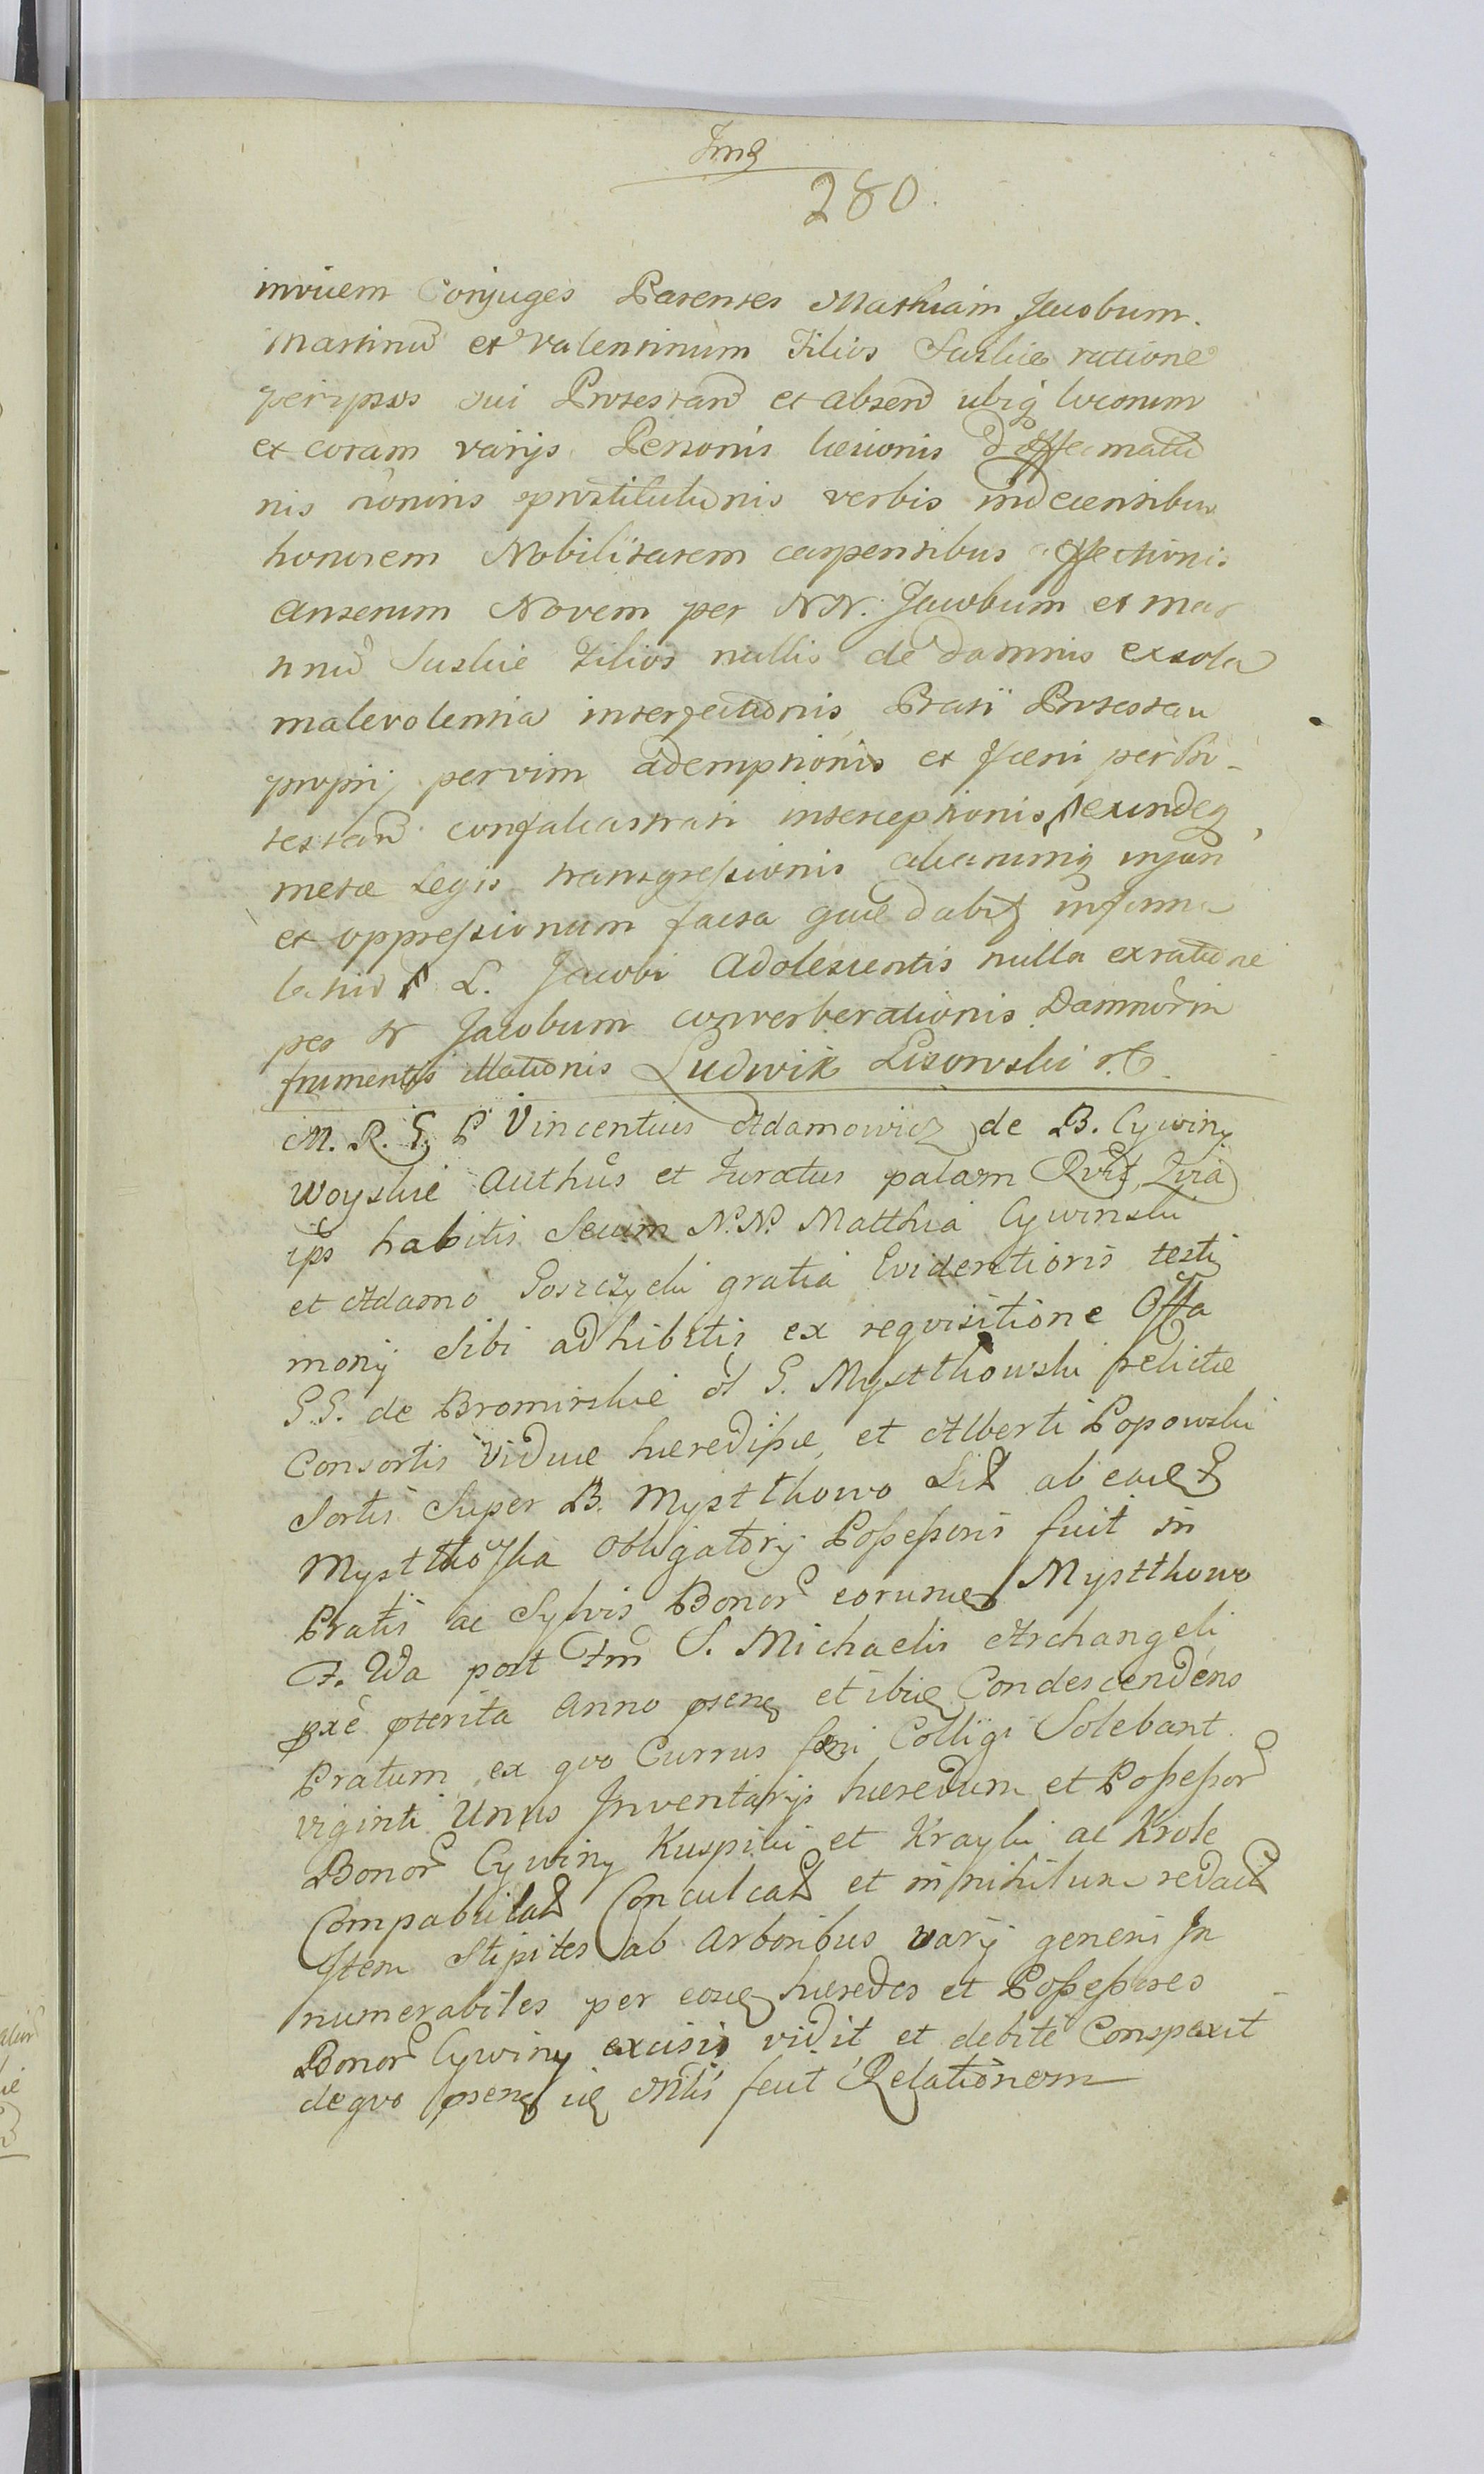 280.
invicem Conjuges Parentes Mathiam Jacobum.
Martinu et Valentinum Filios Suskie ratione
peripsos sui Protestand et absend ubiq locorum
et coram varijs Personis lesionis
nis prostitutionis verbis indecentibus
honorem Nobilitatem carpentibus affectionis
Anserum Novem per NN. Jacobum et Mar
tinu Suskie Filios nullis de damnis ex sola
malevolentia interfectionis Prati Protestan
proprij pervim ademptionis et faeni per
testand confalcastrati interceptionis exindeq
metae Legis transgressionis aliarumq injuri
et oppressionum facta
L. Jacobi Adolescentis nulla ex ratione
per N Jacobum converberationis Damnor in
frumentis illationis Ludwik Lisowski
M. R. G. P Vincentius Adamowicz de B. Cywiny
Woyskie Authus et Juratus palam Rvit, Qvia
ips habitis Secum N.N. Matthia Cywinski
et Adamo Goszczycki gratia Evidentioris testi
monij Sibi adhibitis ex reqvisitione Offa
G.G. de Bromirskie G. Mystkowski relictae
Consortis Viduae haeredissae, et Alberti Popowski
Sortis Super B. Mystkowo ab
obligatorij Possessoris fuit in
Pratis ac Sylvis Bonor eorum Mystkowo
F. post Fm S. Michaelis Archangeli
pxe pterita Anno psenq et ibiq Condescendens
Pratum ex qvo Currus feni Colligi Solebant
viginti Unus Inventarijs haeredum et Possessor
Bonor Cywiny Kuspiki et Krayki ac Krole
Compabulat Conculcat et in nihilum redact
Item Stipites ab Arboribus varij generis In
numerabiles per eosq haeredes et Possessores
Bonor Cywiny excisis vidit et debite Conspexit
deqvo psenq fecit Relationem